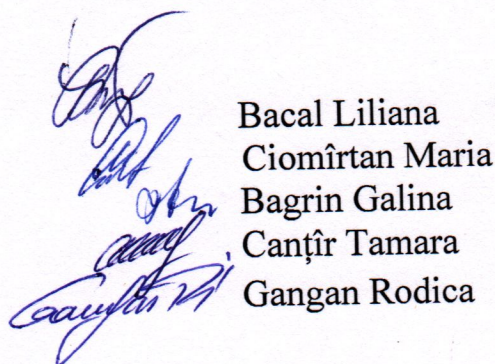 Bacal Liliana
Ciomîrtan Maria
Bagrin Galina
Canțîr Tamara
Gangan Rodica